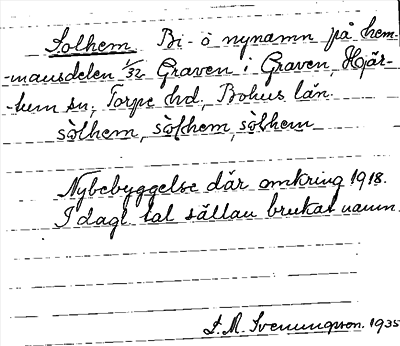 Solhem. Bi- o nynamn på hem-
-mansdelen 1/32 Graven i Graven, Hjär-
-tum sn, Torpe hd, Bohus län.
sòlhem, sòlhem, sòlhem
Nybebyggelse där omkring 1918.
I dagl. tal sällan brukat namn.
S. M. Svenungson. 1935